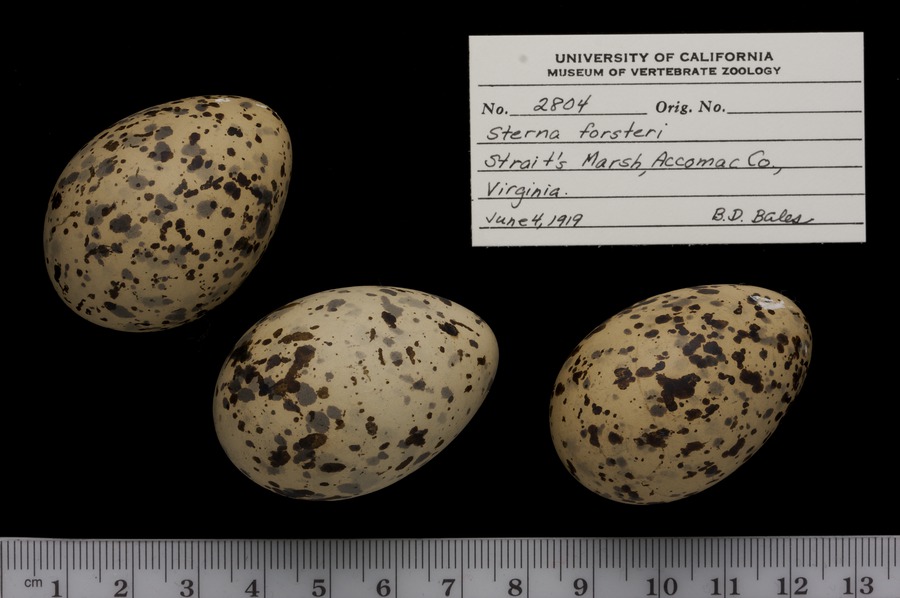 UNIVERSITY OF CALIFORNIA
MUSEUM OF VERTEBRATE ZOOLOGY
No. 2804 Orig. No.
Sterna forsteri
Strait's Marsh, Accomac Co.,
Virginia.
June 4, 1919 B.D. Bales
cm 1 2 3 4 5 6 7 8 9 10 11 12 13